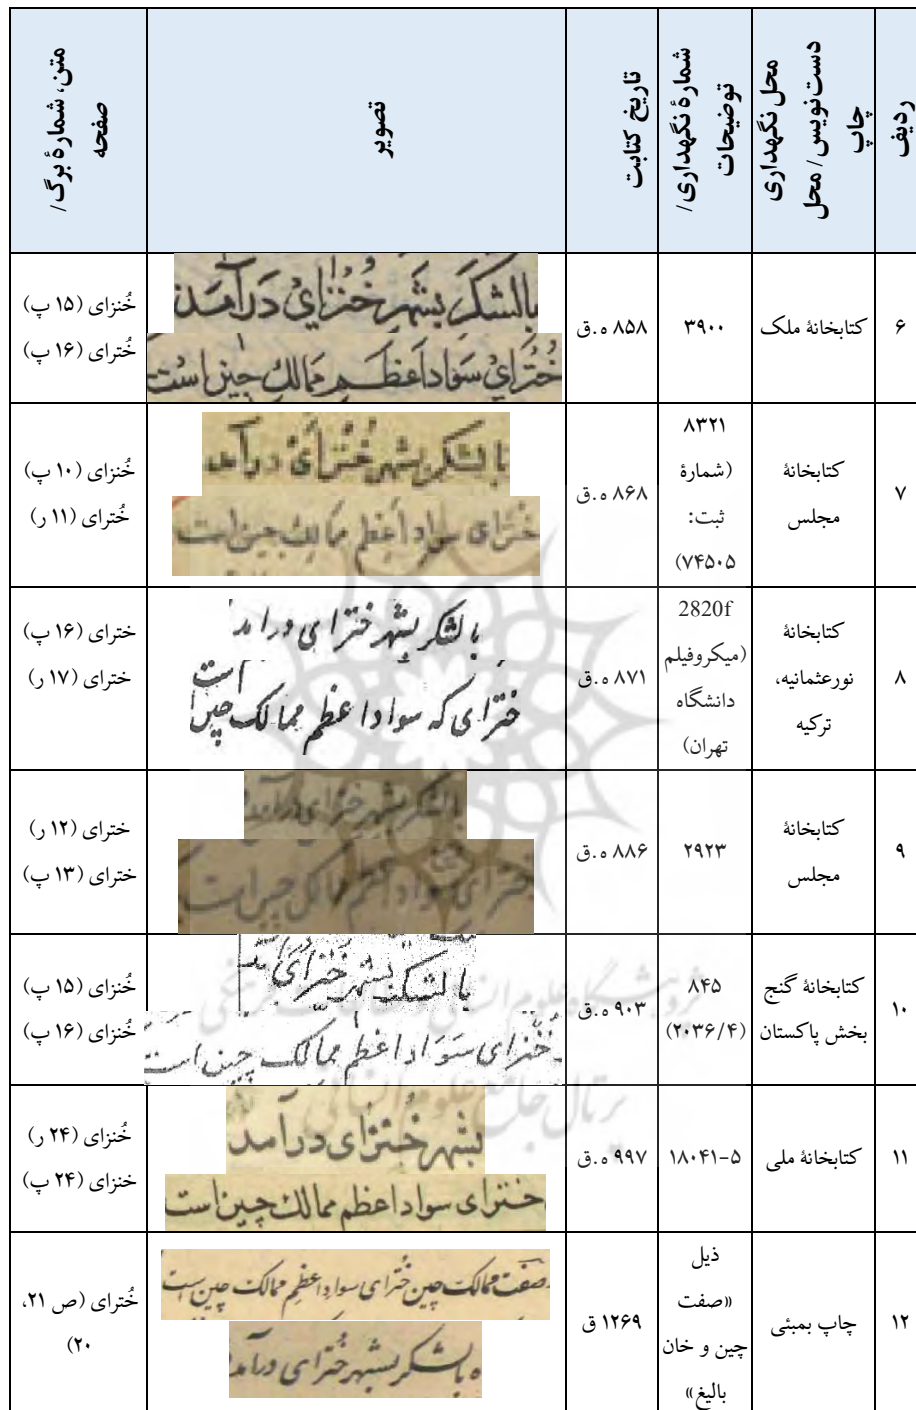 ردیف
محل نگهداری دست‌نویس/ محل چاپ
شمارۀ نگهداری/ توضیحات
تاریخ کتابت
تصویر
متن، شمارۀ برگ/ صفحه
۶
کتابخانۀ ملک
۳۹۰۰
۸۵۸ ه.ق
بالشکر بشهر خُنزایُ درآمد
خُتُرایُ سَوَاد اَعظم مَمالِكِ چین است
خُنزای (۱۵ پ)
خُترای (۱۶ پ)
۷
کتابخانۀ
مجلس
۸۳۲۱
(شمارۀ
ثبت:
۷۴۵۰۵)
۸۶۸ ه.ق
با لشکر بشهر خُنزای درآمد
خترای سواد اَعظم ممالک چین است
خُنزای (۱۰ پ)
خُترای (۱۱ ر)
۸
کتابخانۀ
نورعثمانیه،
ترکیه
2820f
(میکروفیلم
دانشگاه
تهران)
۸۷۱ ه.ق
با لشکر بشهر خترای درامد
خترای که سواد اعظم ممالک چین است
خترای (۱۶ پ)
خترای (۱۷ ر)
۹
کتابخانۀ
مجلس
۲۹۲۳
۸۸۶ ه.ق
بالشکر بشهر خترای درآمد
خترای سواد اعظم ممالک چین است
خترای (۱۲ ر)
خترای (۱۳ پ)
۱۰
کتابخانۀ گنج
بخش پاکستان
۸۴۵
(۲۰۳۶/۴)
۹۰۳ ه.ق
با لشکر بشهر خُنزای
خُنزای سَوَاد اعظم ممالک چین است
خُنزای (۱۵ پ)
خُنزای (۱۶ پ)
۱۱
کتابخانۀ ملی
۱۸۰۴۱-۵
۹۹۷ ه.ق
بشهر خُنزای درآمد
خنزای سواد اعظم ممالك چین است
خُنزای (۲۴ ر)
خنزای (۲۴ پ)
۱۲
چاپ بمبئی
ذیل
«صفت
چین و خان
بالیغ»
۱۲۶۹ ق
صفت ممالک چین خُترای سواد اعظم ممالک چین است
ه بالشکر بشهر خُترای درآمد
خُترای (ص ۲۱،
۲۰)
پژوهشگاه علوم انسانی و مطالعات فرهنگی
پرتال جامع علوم انسانی